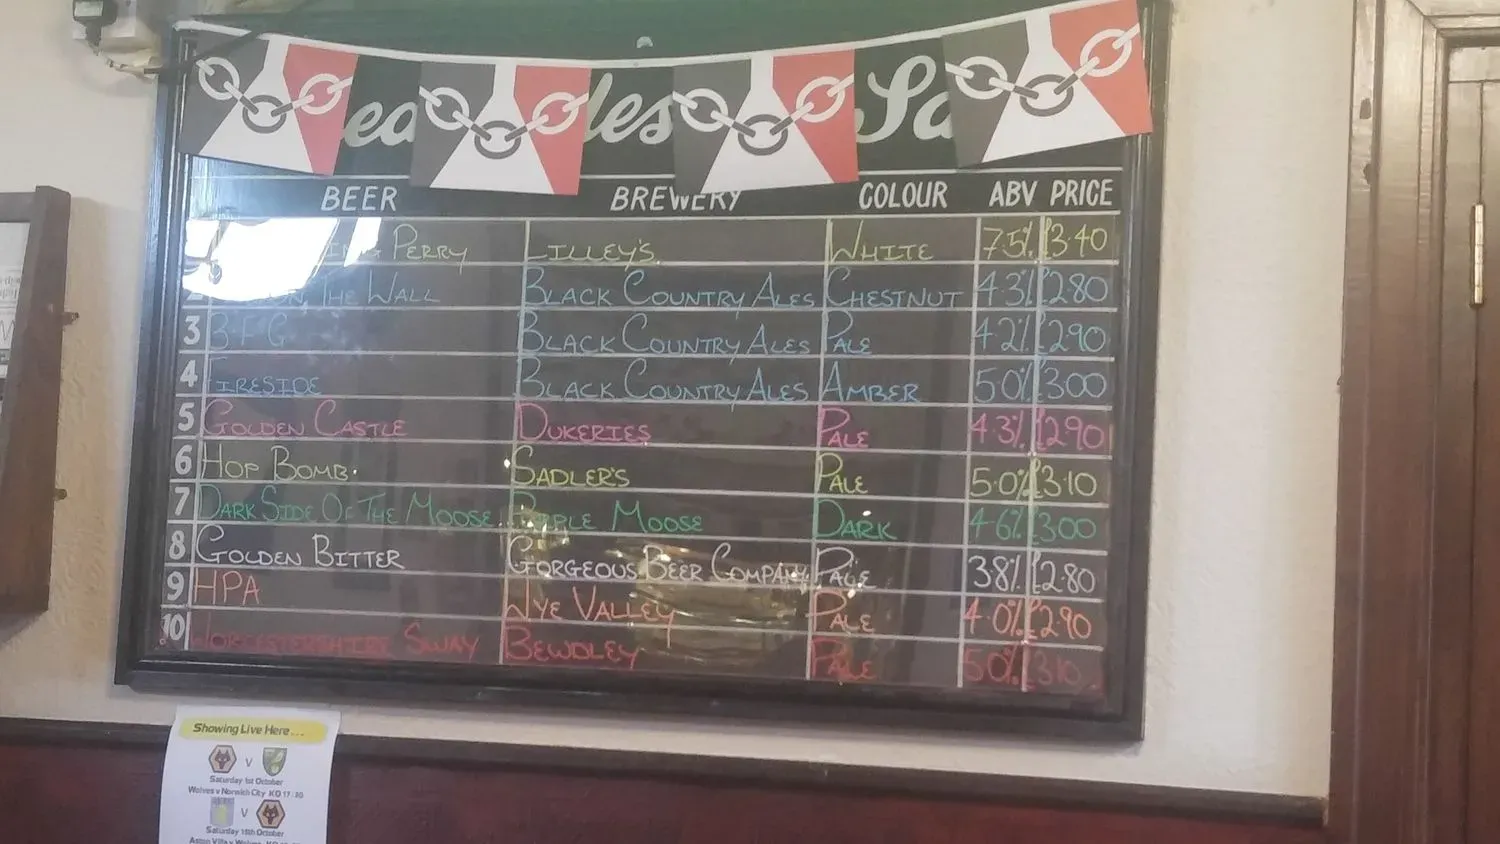 BEER BREWERY COLOUR ABV PRICE
PERRY LILLEY'S WHITE 7.5% £3.40
THE WALL BLACK COUNTRY ALES CHESTNUT 4.3% £2.80
3 B.F.G BLACK COUNTRY ALES PALE 4.2% £2.90
4 FIRESIDE BLACK COUNTRY ALES AMBER 5.0% £3.00
5 GOLDEN CASTLE DUKERIES PALE 4.3% £2.90
6 HOP BOMB. SADLER'S PALE 5.0% £3.10
7 DARK SIDE OF THE MOOSE PURPLE MOOSE DARK 4.6% £3.00
8 GOLDEN BITTER GORGEOUS BEER COMPANY PALE 3.8% £2.80
9 HPA WYE VALLEY PALE 4.0% £2.90
10 WORCESTERSHIRE SWAY BEWDLEY PALE 5.0% £3.10
Showing Live Here...
V
Saturday 1st October
Wolves v Norwich City KO 17:30
V
Saturday 15th October
Aston Villa v Wolves